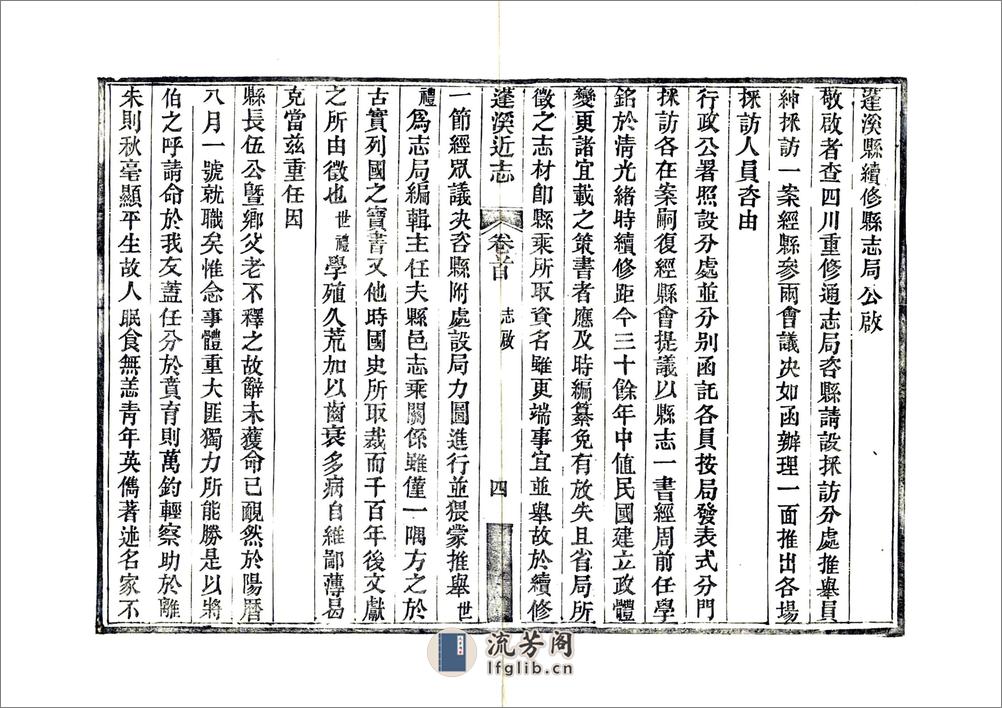 蓬溪縣續修縣志局公啟
敬啟者查四川重修通志局咨縣請設採訪分處推舉員
紳採訪一案經縣參兩會議决如函辦理一面推出各場
採訪人員咨由
行政公署照設分處並分别函託各員按局發表式分門
採訪各在案嗣復經縣會提議以縣志一書經周前任學
銘於清光緒時續修距今三十餘年中值民國建立政體
變更諸宜載之策書者應及時編纂免有放失且省局所
徵之志材卽縣乘所取資名雖更端事宜並舉故於續修
蓬溪近志 卷首 志啟 四
一節經眾議决咨縣附處設局力圖進行並猥蒙推舉世
禮爲志局編輯主任夫縣邑志乘關係雖僅一隅方之於
古實列國之寶書又他時國史所取裁而千百年後文獻
之所由徵也世禮學殖久荒加以齒衰多病自維鄙薄曷
克當兹重任因
縣長伍公暨鄉父老不釋之故辭未獲命已覥然於陽曆
八月一號就職矣惟念事體重大匪獨力所能勝是以將
伯之呼請命於我友蓋任分於賁育則萬鈞輕察助於離
朱則秋毫顯平生故人眠食無恙青年英儁著述名家不
流芳阁
lfglib.cn